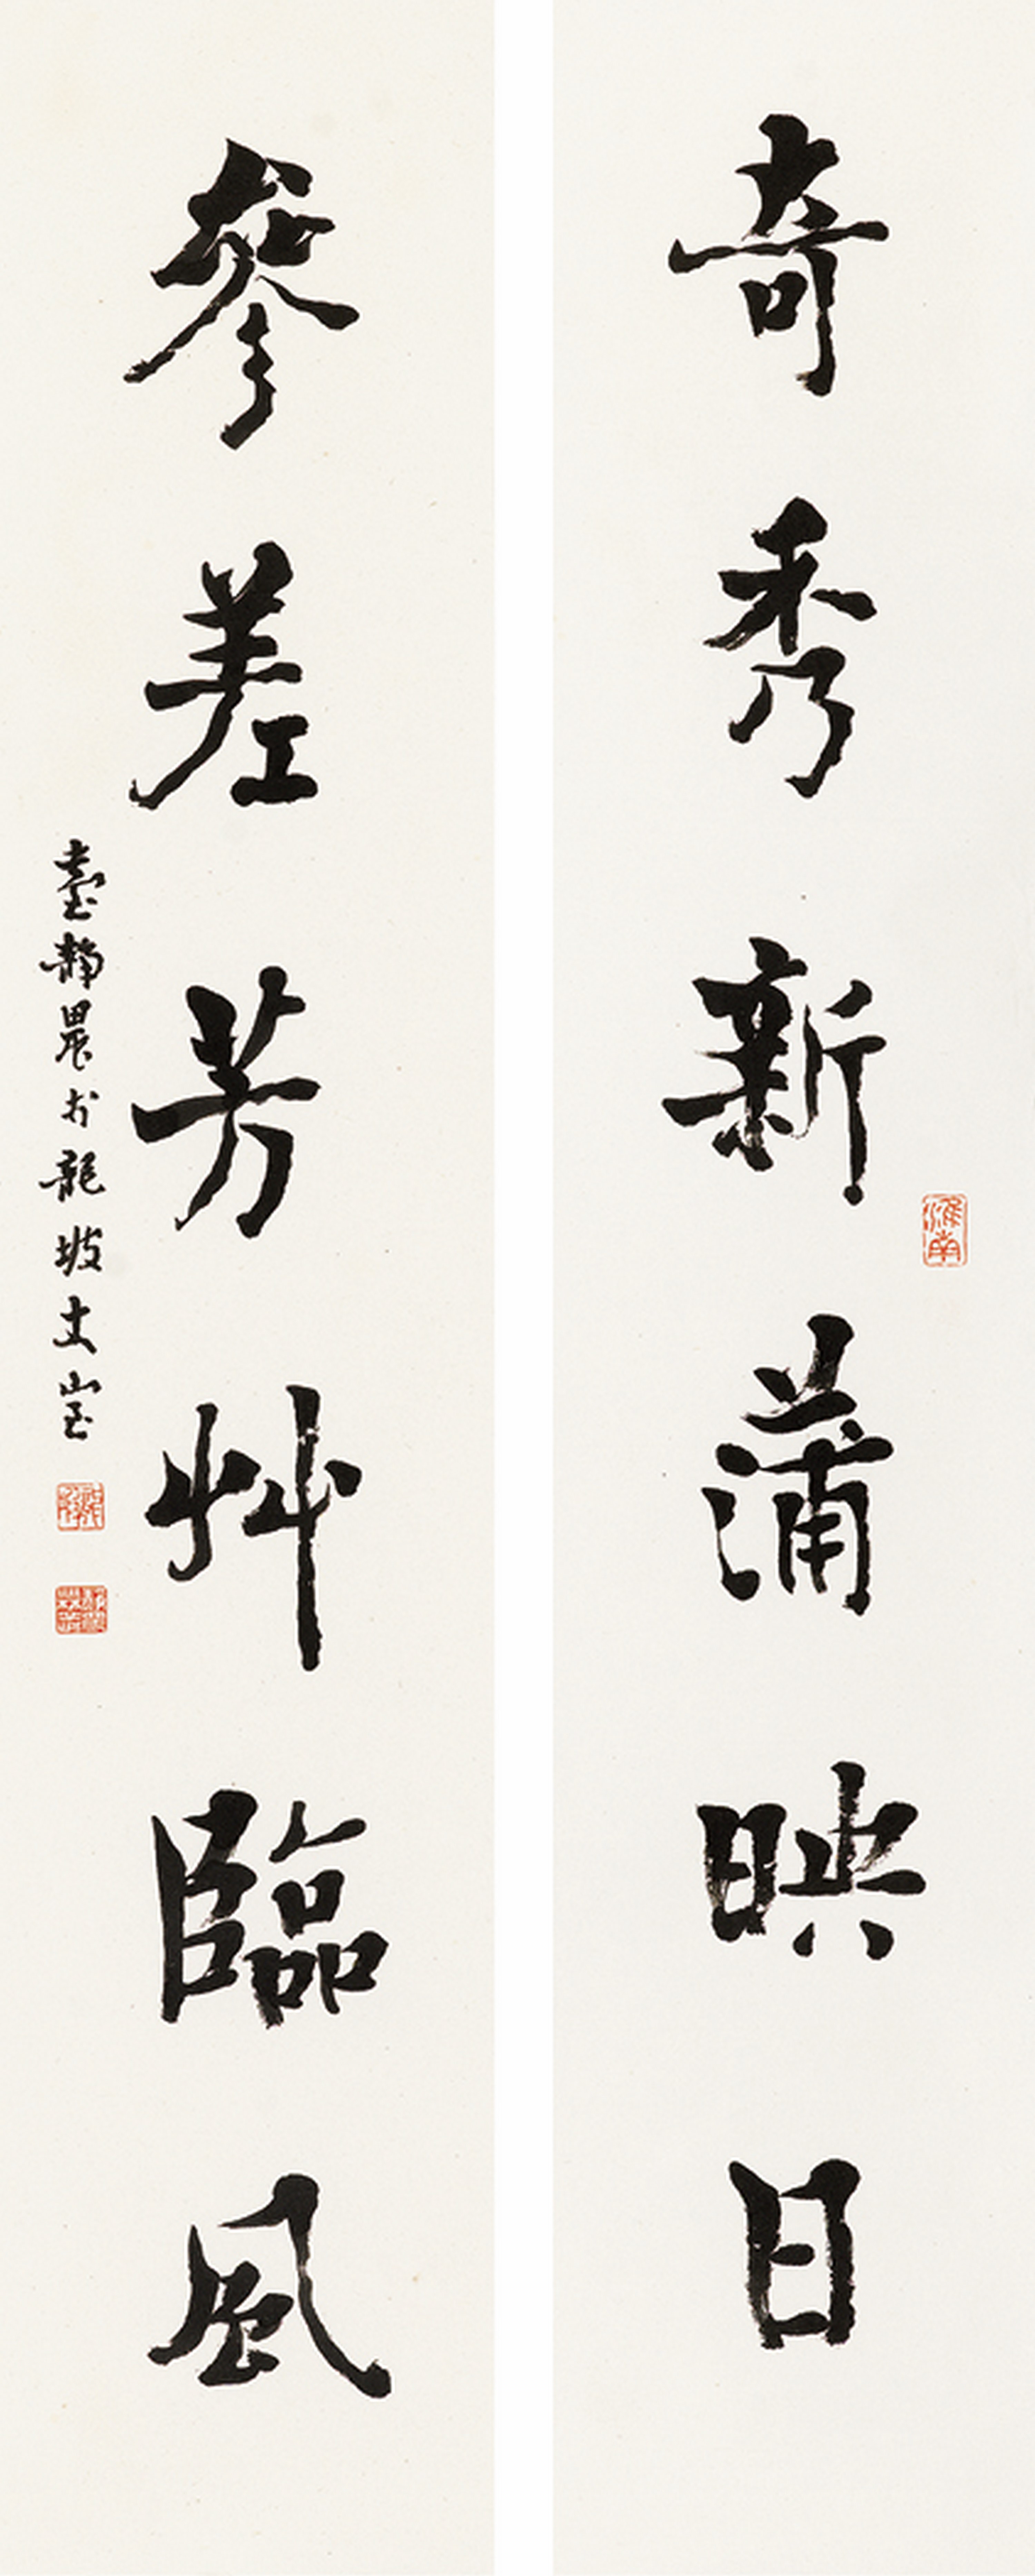 奇秀新蒲映日
參差芳艸臨風
臺靜農於龍坡丈室
淮南